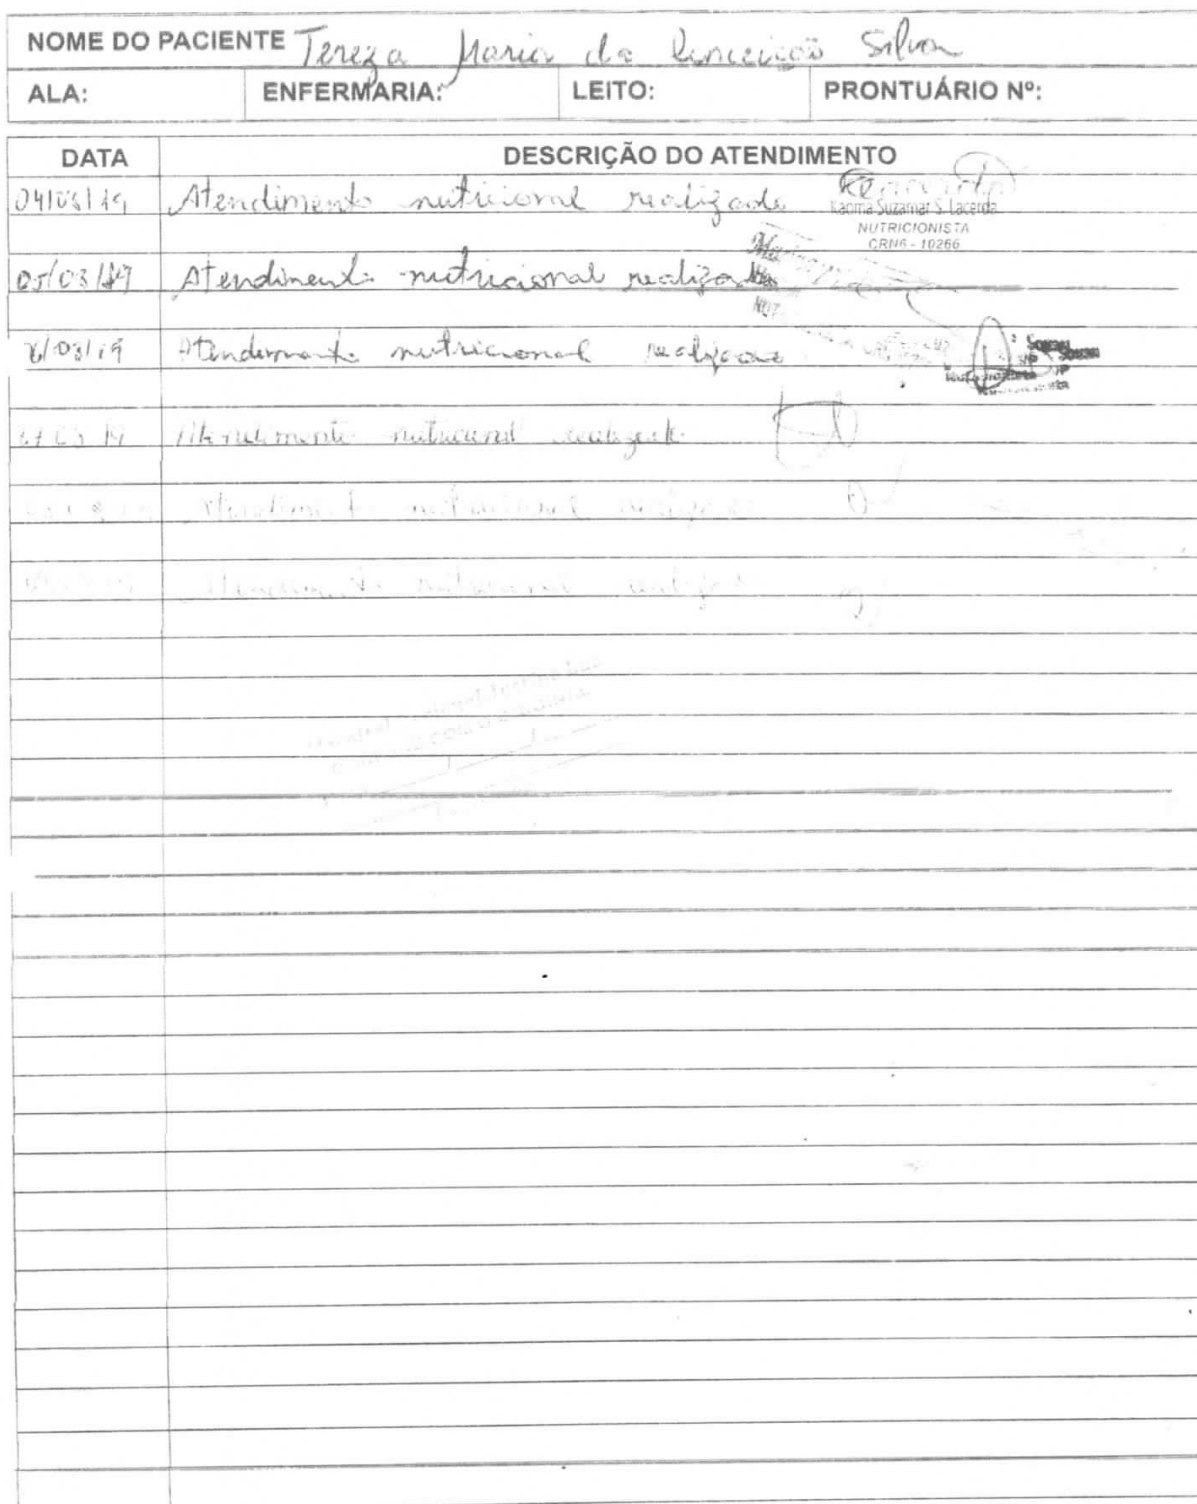 NOME DO PACIENTE Tereza Maria da Conceição Silva
ALA: ENFERMARIA: LEITO: PRONTUÁRIO Nº:
DATA DESCRIÇÃO DO ATENDIMENTO
04/03/19 Atendimento nutricional realizado
Kaoma Suzamar S. Lacerda
NUTRICIONISTA
CRN6 - 10266
05/03/19 Atendimento nutricional realizado
/03/19 Atendimento nutricional realizado
Atendimento nutricional realizado
Atendimento nutricional realizado
Atendimento nutricional realizado